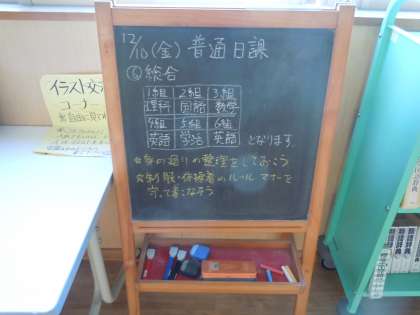 12/10(金) 普通日課
⑥総合
1組 2組 3組
理科 国語 数学
4組 5組 6組
英語 学活 英語 となります
☆身の回りの整理をしておこう
☆制服・体操着のルール マナーを
守って着こなそう
イラスト交流
コーナー